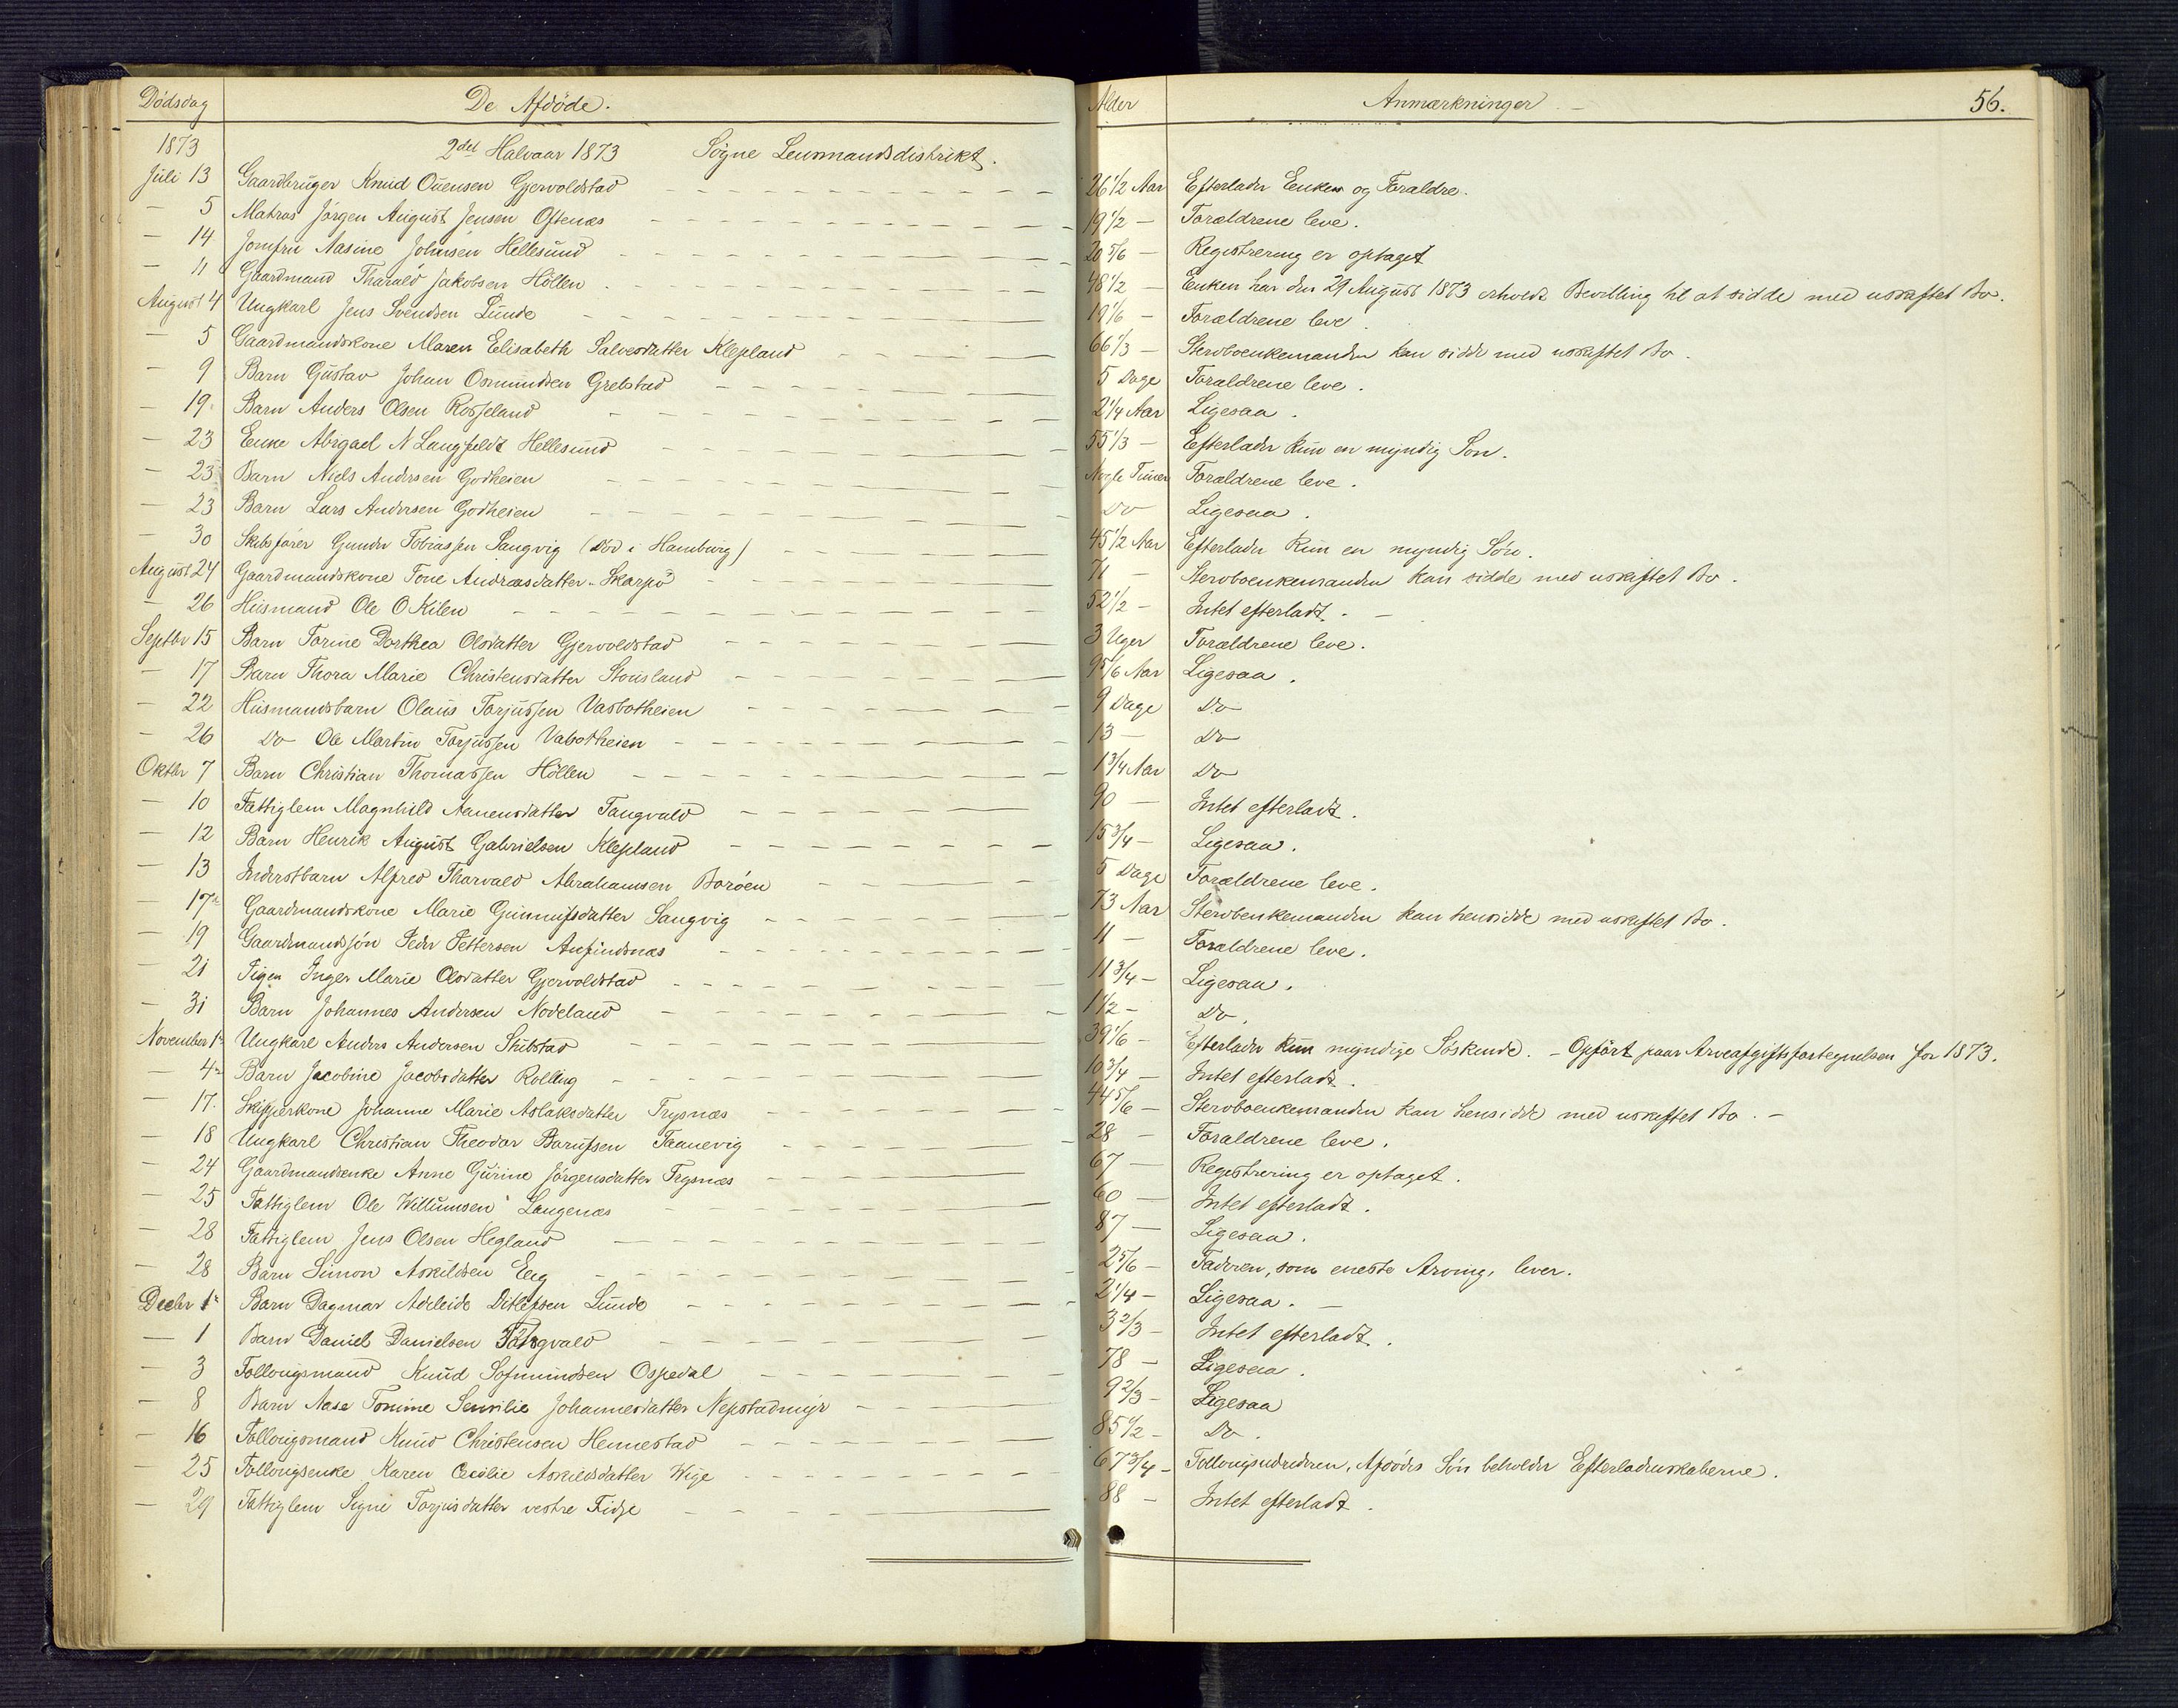 Dödsdag De Afdöde. Alder Anmærkninger 56.
1873 2det Halvaar 1873 Sögne Lensmandsdistrikt.
Juli 13 Gaardbruger Knud Ouensen Gjervoldstad 26 1/2 Aar Efterlader Enken og Forældre.
— 5 Matros Jörgen August Jensen Oftenæs 19 1/2 — Forældrene leve.
— 14 Jomfru Nasine Johnsen Hellesund 20 5/6 — Registrering er optaget
— 11 Gaardmand Tharald Jakobsen Höllen 48 1/2 — Enken har den 29 August 1873 erholdt Bevilling til at sidde med uskiftet Bo.
August 4 Ungkarl Jens Svendsen Lunde 19 1/6 — Forældrene leve.
— 5 Gaardmandskone Maren Elisabeth Salvesdatter Klepland 66 1/3 — Stervboenkemanden kan sidde med uskiftet Bo.
— 9 Barn Gustav Johan Osmundsen Grelstad 5 Dage Forældrene leve.
— 19 Barn Anders Olsen Rosseland 2 1/4 Aar Ligesaa.
— 23 Enke Abigael N Langfeldt Hellesund 55 1/3 — Efterlader kun en myndig Son.
— 23 Barn Niels Andersen Godheien Nogle Timer Forældrene leve.
— 23 Barn Lars Andersen Godheien Do Ligesaa.
— 30 Skibsförer Gunder Tobiassen Langvig (Död i Hamburg) 45 1/2 Aar Efterlader kun en myndig Sön.
August 24 Gaardmandskone Tone Andreasdatter Skarpö 71 — Stervboenkemanden kan sidde med uskiftet Bo.
— 26 Husmand Ole O Kilen 52 1/2 — Intet efterladt. —
Septbr 15 Barn Torine Dorthea Olsdatter Gjervoldstad 3 Uger Forældrene leve.
— 17 Barn Thora Marie Christensdatter Stousland 9 5/6 Aar Ligesaa.
— 22 Husmandsbarn Olaus Torjussen Vasbotheien 9 Dage Do
— 26 Do Ole Martin Torjussen Vabotheien 13 — Do
Oktbr 7 Barn Christian Thomassen Höllen 1 3/4 Aar Do
— 10 Fattiglem Magnhild Aanensdatter Tangvald 90 — Intet efterladt.
— 12 Barn Henrik August Gabrielsen Klepland 15 3/4 — Ligesaa.
— 13 Inderstbarn Alfred Tharvald Abrahamsen Boröen 5 Dage Forældrene leve.
— 17 Gaardmandskone Marie Gunnufsdatter Langvig 73 Aar Stervbenkemanden kan hensidde med uskiftet Bo.
— 19 Gaardmandssön Peder Pettersen Anfindsnæs 11 — Forældrene leve.
— 21 Pigen Inger Marie Olsdatter Gjervoldstad 11 3/4 — Ligesaa.
— 31 Barn Johannes Andersen Nodeland 1 1/2 — Do.
November 1 Ungkarl Anders Andersen Stubstad 39 1/6 — Efterlader kun myndige Söskende. — Opfört paa Arveafgiftsfortegnelsen for 1873.
— 4 Barn Jacobine Jacobsdatter Rolling 10 3/4 — Intet efterladt.
— 17 Skipperkone Johanne Marie Aslaksdatter Trysnæs 44 5/6 — Stervboenkemanden kan hensidde med uskiftet Bo. —
— 18 Ungkarl Christian Theodor Berulfsen Taanevig 28 — Forældrene leve.
— 24 Gaardmandsenke Anne Gurine Jörgensdatter Trysnæs 67 — Registrering er optaget.
— 25 Fattiglem Ole Willumsen Langenæs 60 — Intet efterladt.
— 28 Fattiglem Jens Olsen Hegland 87 — Ligesaa.
— 28 Barn Simon Askildsen Eeg 2 5/6 — Faderen, som eneste Arving, lever.
Decbr 1 Barn Dagmar Adeleide Ditlefsen Lunde 2 1/4 — Ligesaa. —
— 1 Barn Daniel Danielsen 3 2/3 — Intet efterladt.
— 3 Follougsmand Knud Sofmundsen Ospedal 78 — Ligesaa.
— 8 Barn Aase Tomine Johannesdatter Nepstadmyr 9 2/3 — Ligesaa
— 16 Follougsmand Knud Christensen Hennestad 85 1/2 — Do.
— 25 Follougsenke Karen Cecilie Askildsdatter Wige 67 3/4 — Follougsudrederen, Afdödes Sön beholder Efterladenskaberne.
— 29 Fattiglem Signe Torjusdatter vestre Fidje 88 — Intet efterladt.